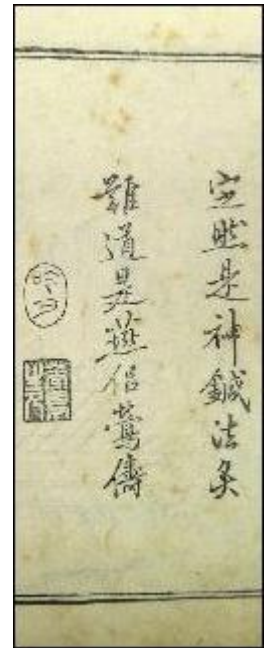 定然是神鍼法灸
難道是燕侶鶯儔